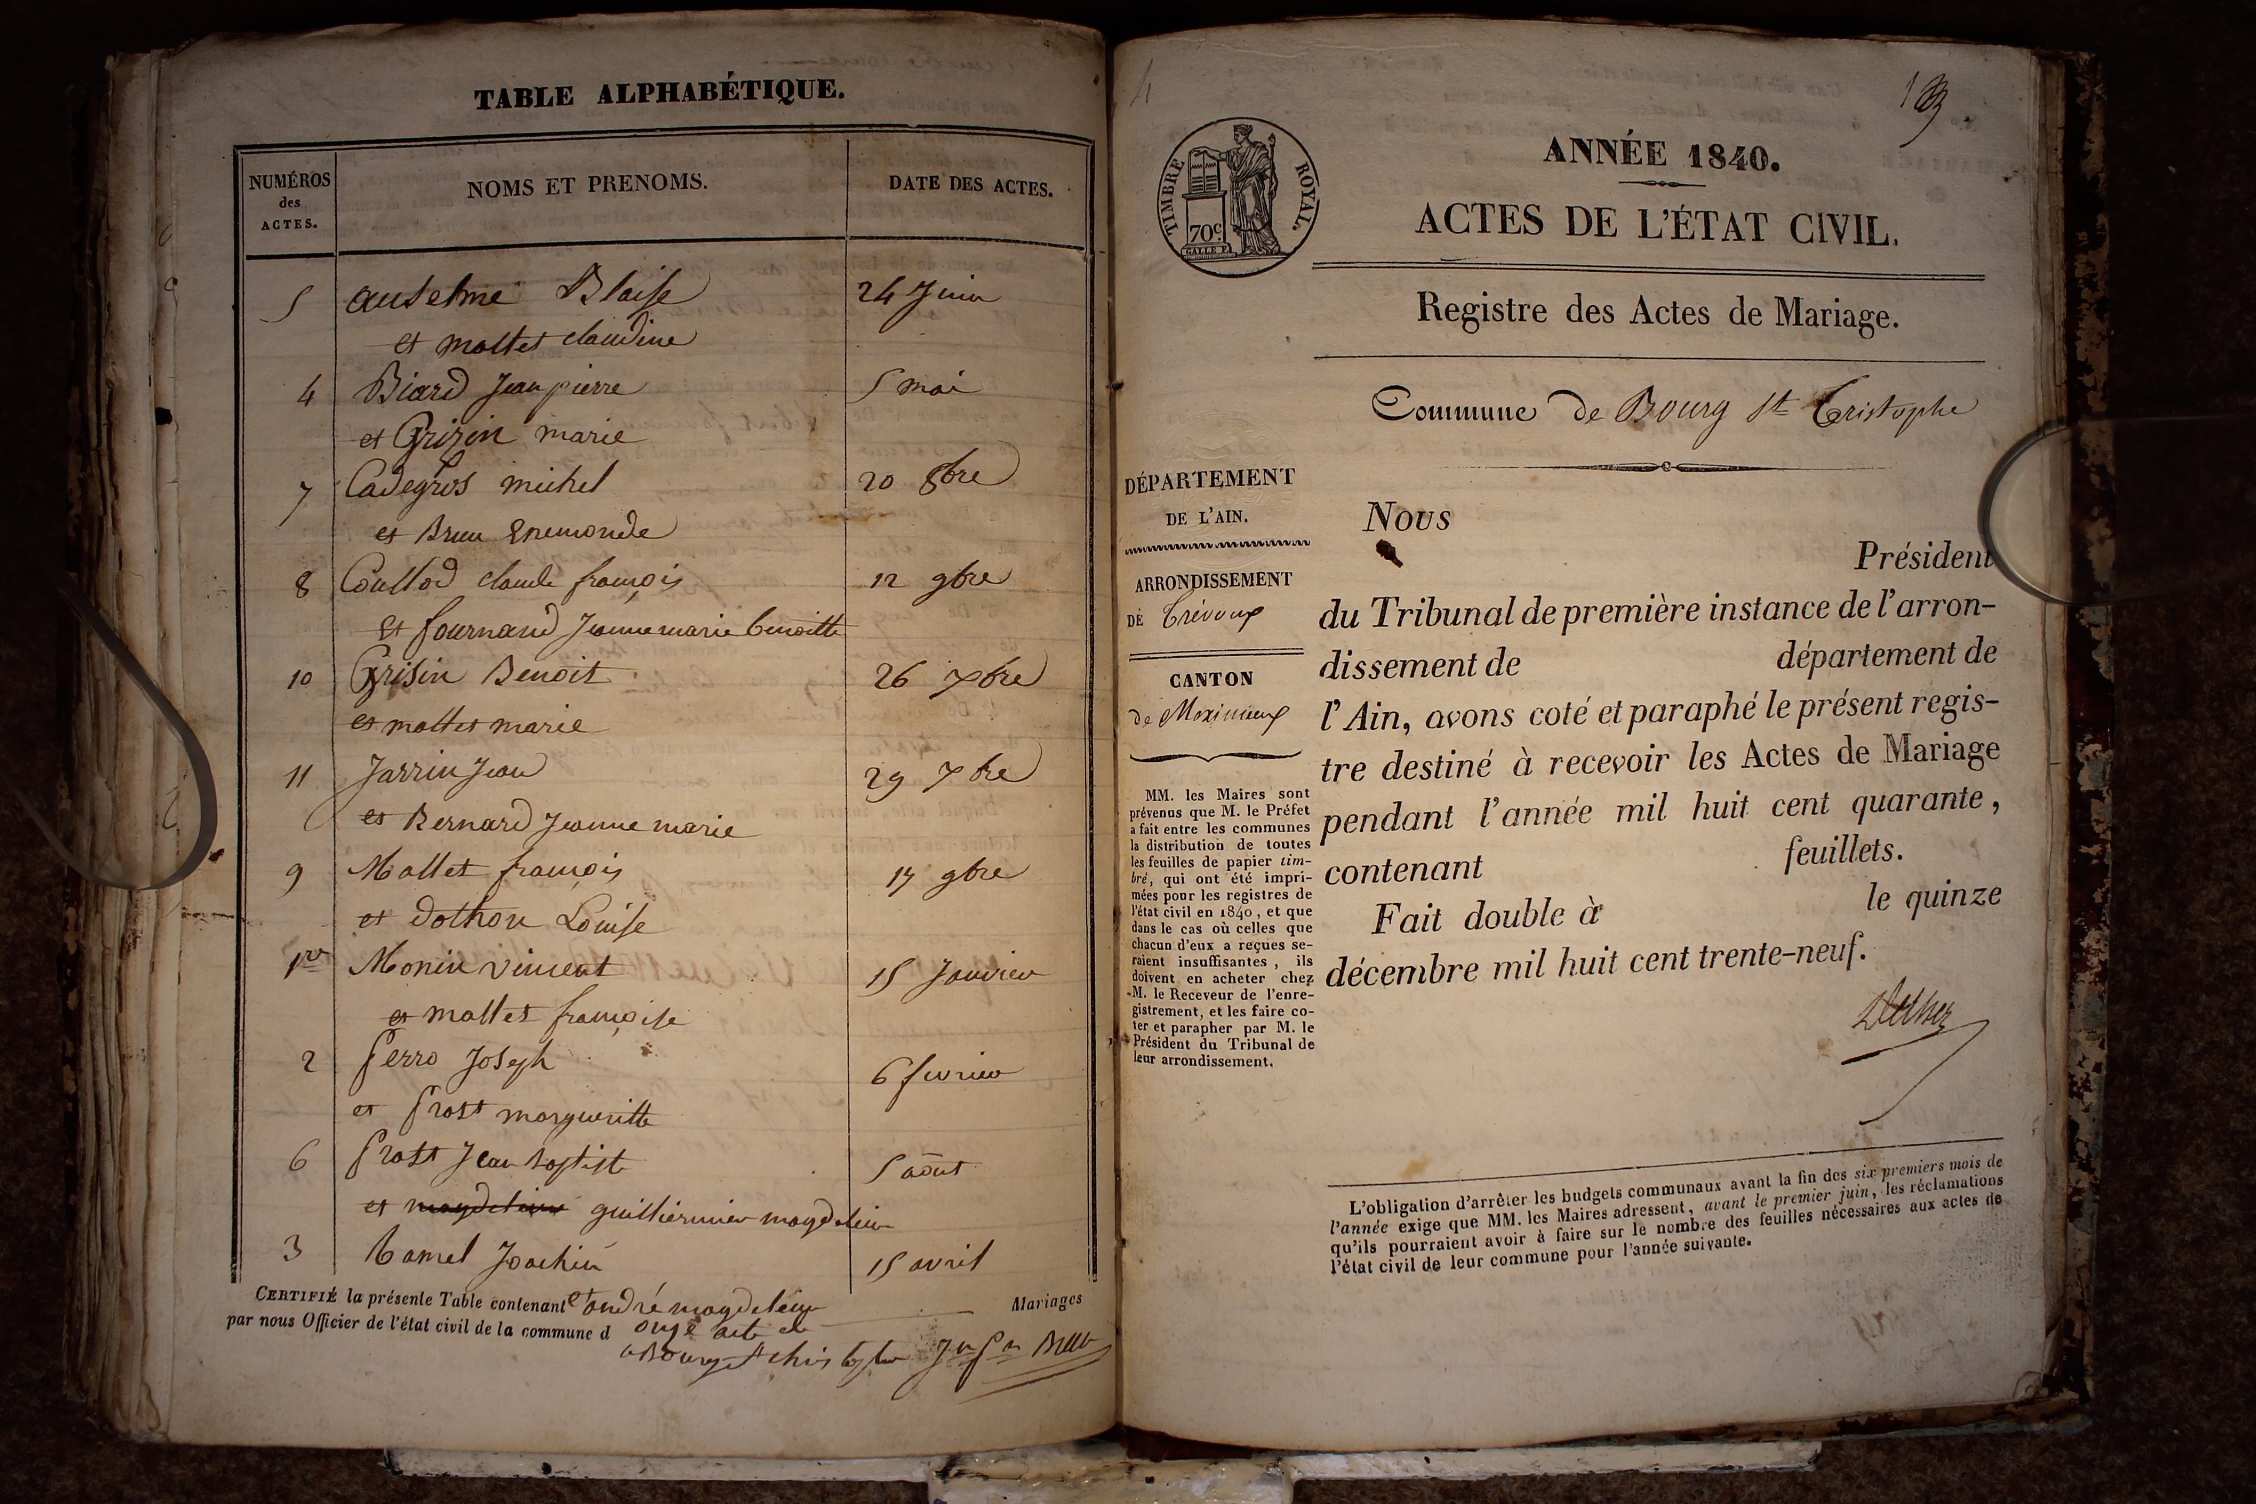 TABLE ALPHABÉTIQUE.
NUMÉROS des ACTES. NOMS ET PRENOMS. DATE DES ACTES.
5 Anselme Blaise 24 Juin
et mollet claudine
4 Biard Jean pierre 5 mai
et Grisin marie
7 Cadegros michel 20 8bre
et Brun Enemonde
8 Coullod claude françois 12 9bre
et fournand Jeanne marie benoitte
10 Grisin Benoit 26 xbre
et mollet marie
11 Jarrin Jean 29 xbre
et Bernard Jeanne marie
9 Mollet françois 17 9bre
et dothon Louise
1er Monin vincent 15 Janvier
et mollet françoise
2 perro Joseph 6 fevrier
et prost margueritte
6 prost Jean baptiste 5 aout
et magdeleine guilliermier magdeleine
3 Ramel Joachin 15 avril
CERTIFIÉ la présente Table contenant et André magdeleine Mariages
par nous Officier de l'état civil de la commune d onze acte
Bourg st christophe
4
TIMBRE ROYAL.
70c.
ANNÉE 1840.
ACTES DE L'ÉTAT CIVIL.
Registre des Actes de Mariage.
Commune de Bourg St Cristophe
DÉPARTEMENT
DE L'AIN.
ARRONDISSEMENT
DE Trévoux
CANTON
de Meximieux
MM. les Maires sont
prévenus que M. le Préfet
a fait entre les communes
la distribution de toutes
les feuilles de papier tim-
bré, qui ont été impri-
mées pour les registres de
l'état civil en 1840, et que
dans le cas où celles que
chacun d'eux a reçues se-
raient insuffisantes, ils
doivent en acheter chez
M. le Receveur de l'enre-
gistrement, et les faire co-
ter et parapher par M. le
Président du Tribunal de
leur arrondissement.
Nous
Président
du Tribunal de première instance de l'arron-
dissement de département de
l'Ain, avons coté et paraphé le présent regis-
tre destiné à recevoir les Actes de Mariage
pendant l'année mil huit cent quarante,
contenant feuillets.
Fait double à le quinze
décembre mil huit cent trente-neuf.
L'obligation d'arrêter les budgets communaux avant la fin des six premiers mois de
l'année exige que MM. les Maires adressent, avant le premier juin, les réclamations
qu'ils pourraient avoir à faire sur le nombre des feuilles nécessaires aux actes de
l'état civil de leur commune pour l'année suivante.